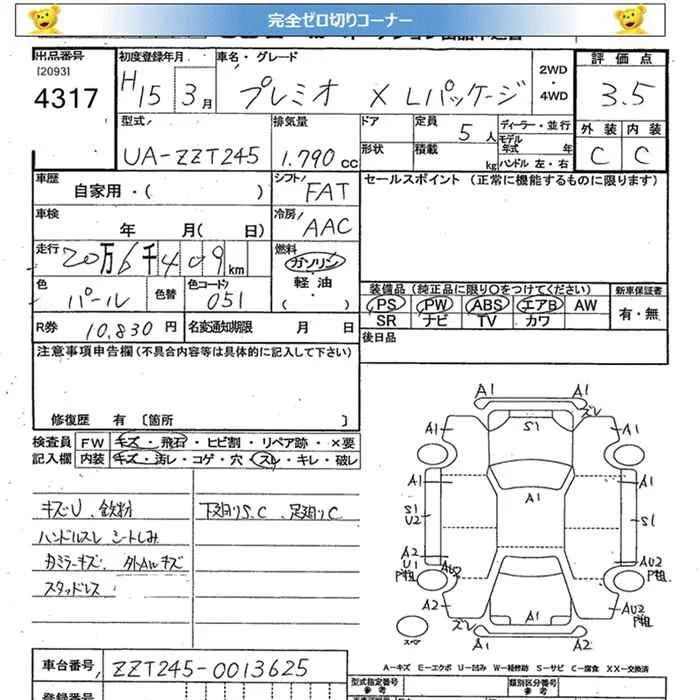 完全ゼロ切りコーナー
出品番号 初度登録年月 車名・グレード 2WD・4WD 評価点
[2093] H15 3月 プレミオ X Lパッケージ 3.5
4317
型式 排気量 ドア 定員 5人 ディーラー・並行 外装 内装
UA-ZZT245 1.790cc 形状 積載 kg モデル年式 年 C C
ハンドル 左・右
車歴 シフト セールスポイント (正常に機能するものに限ります)
自家用・( ) FAT
車検 冷房
年 月( 日) AAC
走行 20万6千409km 燃料
ガソリン
軽油
・( )
色 パール 色替 色コード 051
装備品 (純正品に限り〇をつけてください) 新車保証書
PS PW ABS エアB AW 有・無
SR ナビ TV カワ
R券 10,830円 名変通知期限 月 日
後日品
注意事項申告欄(不具合内容等は具体的に記入して下さい)
修復歴 有 〔箇所 〕
検査員 FW キズ・飛石・ヒビ割・リペア跡・×要
記入欄 内装 キズ・汚レ・コゲ・穴・スレ・キレ・破レ
キズU、鉄粉 下廻りS.C 足廻りC
ハンドルスレ シートしみ
カミラーキズ 外AWキズ
スタッドレス
A1 A1
ズレ
A1 S1 A1
A1 A1 A1
S1 U2 S1
A2 U1 P粗 AU2 AU2 P粗
A2 A1 AU2
ズレ P粗
スペア A1 A1
A-キズ E-エクボ U-凹み W-補修跡 S-サビ C-腐食 XX-交換済
車台番号 ZZT245-0013625 型式指定番号 参考 類別区分番号 参考
登録番号